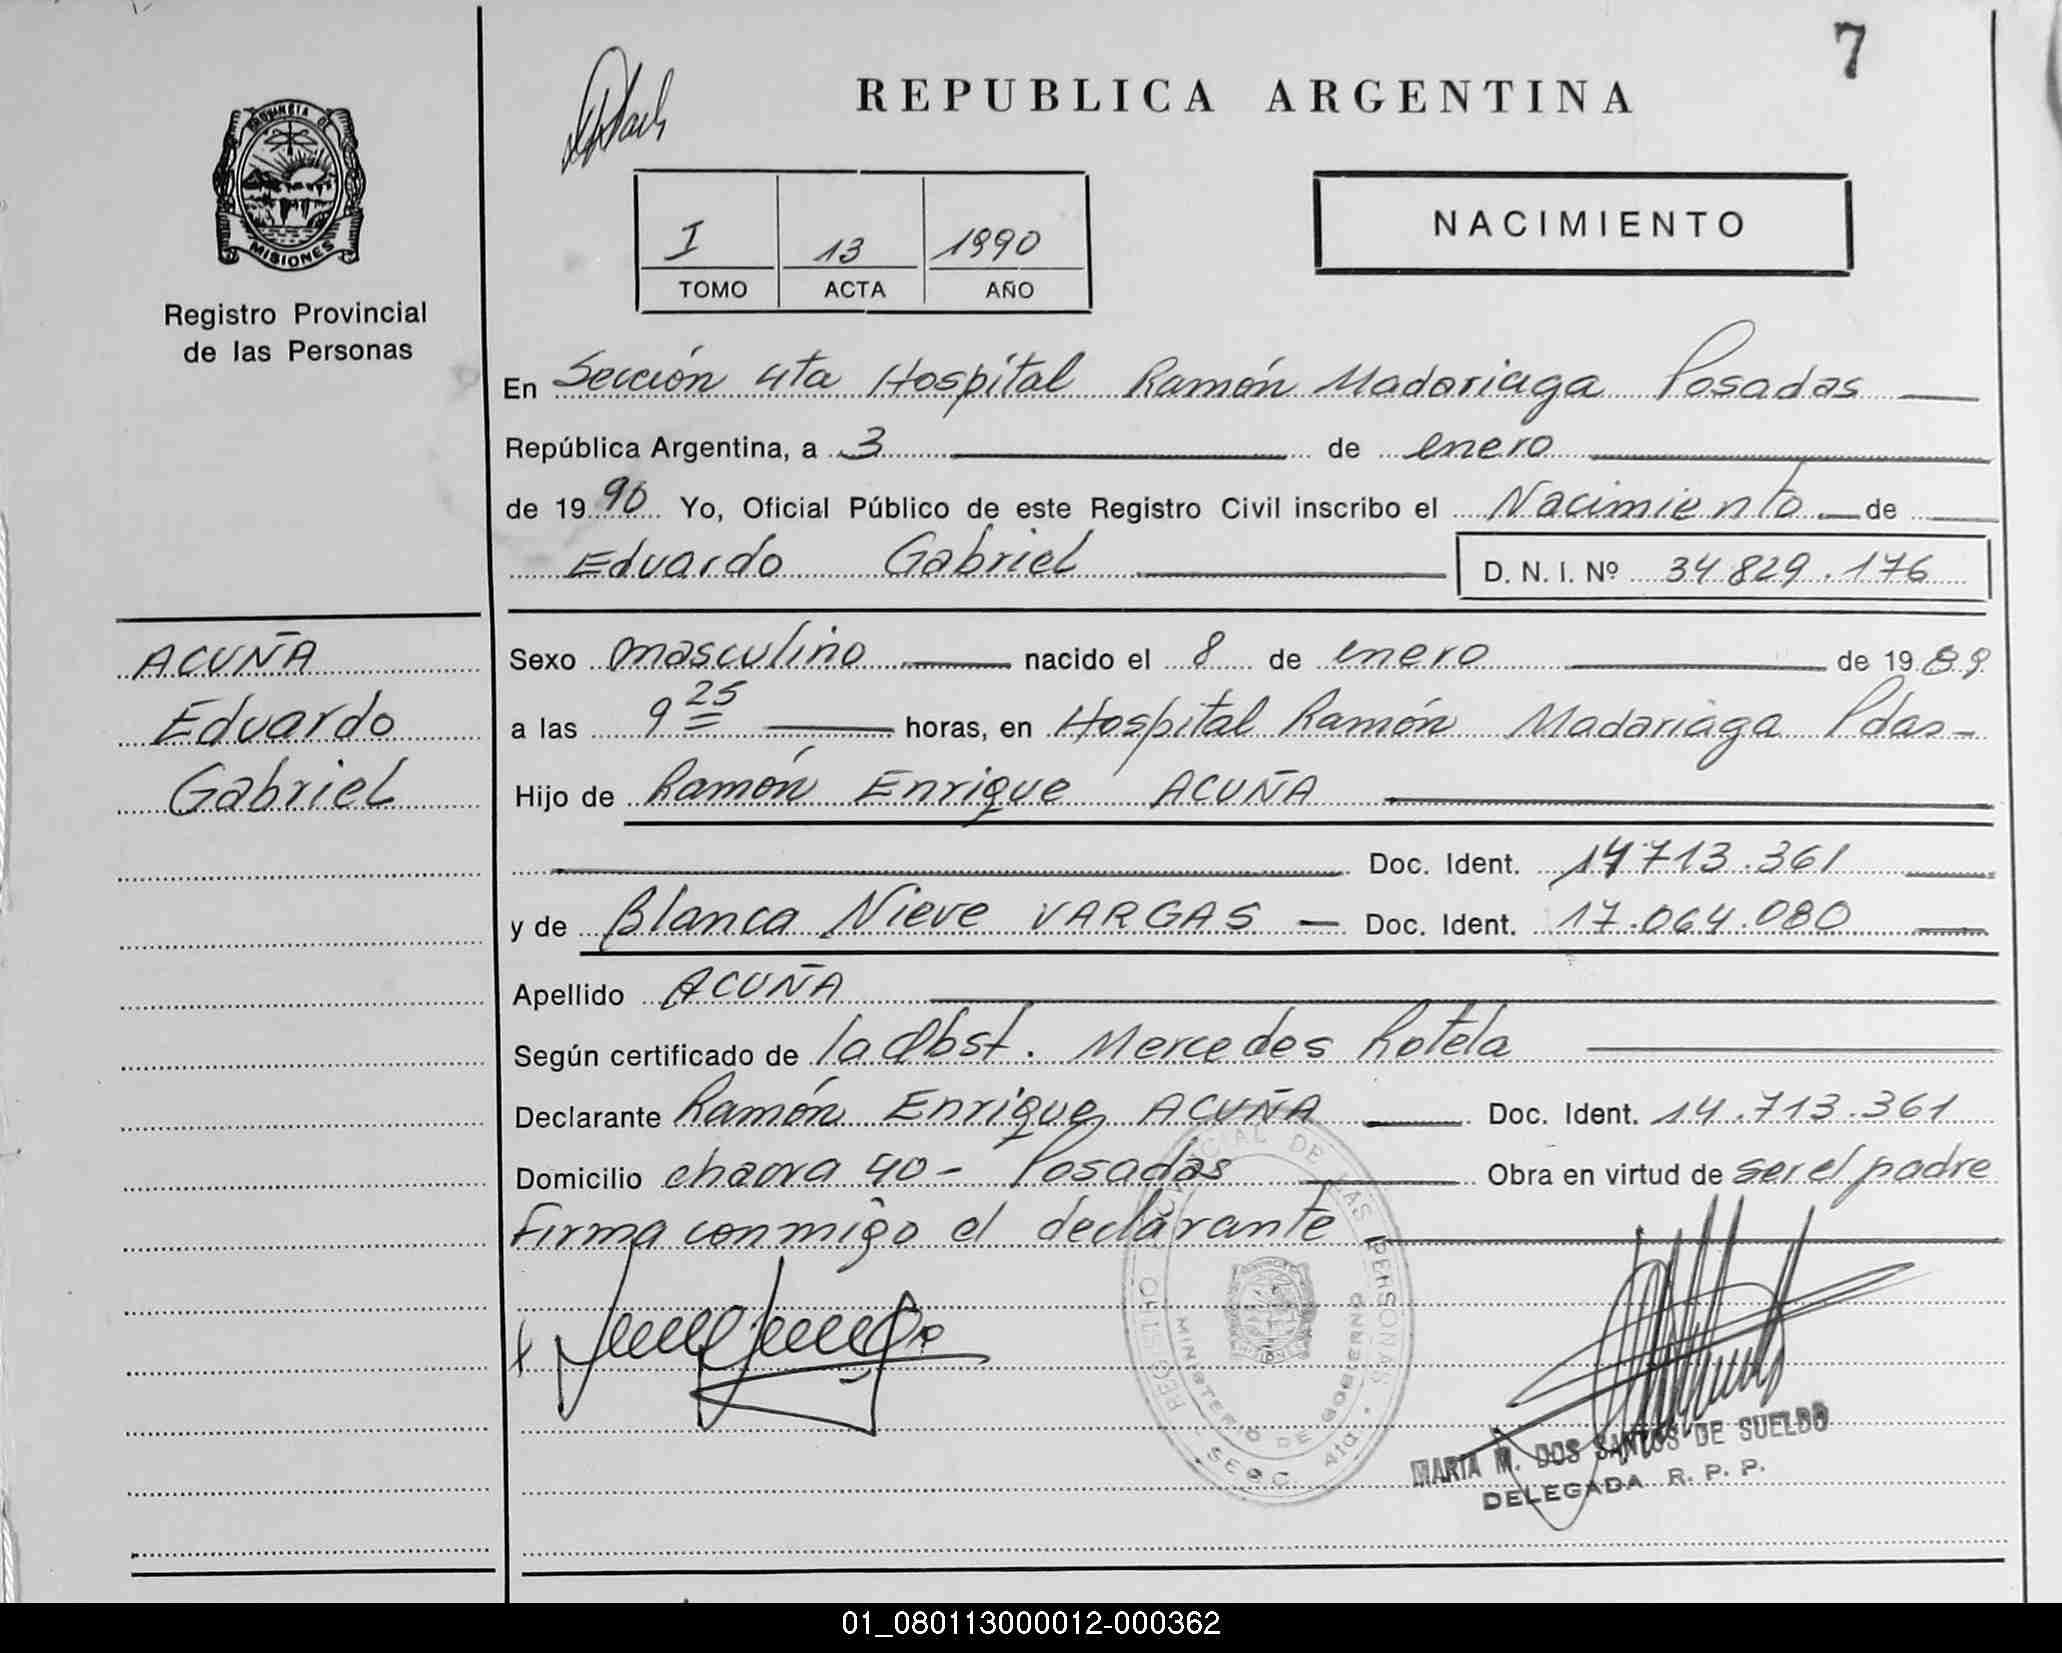 7
REPUBLICA ARGENTINA
PROVINCIA DE
MISIONES
Registro Provincial
de las Personas
I 13 1990
TOMO ACTA AÑO
NACIMIENTO
En Sección 4ta Hospital Ramón Madariaga Posadas
República Argentina, a 3 de enero
de 1990 Yo, Oficial Público de este Registro Civil inscribo el Nacimiento de
Eduardo Gabriel D. N. I. Nº 34.829.176
ACUÑA
Eduardo
Gabriel
Sexo masculino nacido el 8 de enero de 1989
a las 9 25 horas, en Hospital Ramón Madariaga Pdas-
Hijo de Ramón Enrique ACUÑA
Doc. Ident. 14.713.361
y de Blanca Nieve VARGAS — Doc. Ident. 17.064.080
Apellido ACUÑA
Según certificado de la Obst. Mercedes Rotela
Declarante Ramón Enrique ACUÑA Doc. Ident. 14.713.361
Domicilio chacra 40- Posadas Obra en virtud de ser el padre
Firma conmigo el declarante
REGISTRO PROVINCIAL DE LAS PERSONAS
MINISTERIO DE GOBIERNO
SECC. 4ta.
MARIA M. DOS SANTOS DE SUELDO
DELEGADA R. P. P.
01_080113000012-000362